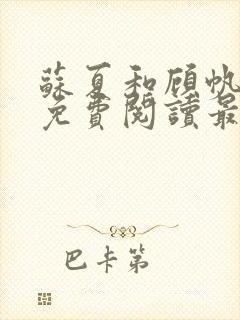 蘇夏和顧帆
免費閱讀最
巴卡第